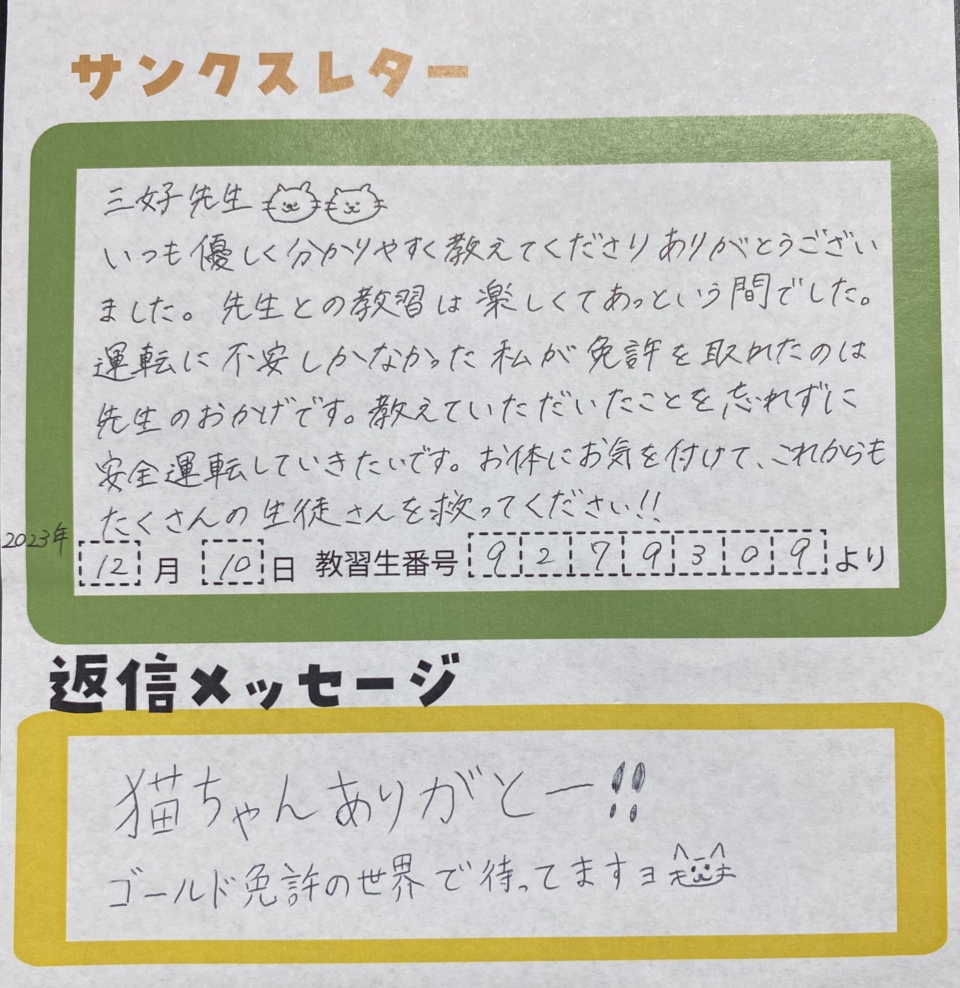 サンクスレター
三好先生
いつも優しく分かりやすく教えてくださりありがとうござい
ました。先生との教習は楽しくてあっという間でした。
運転に不安しかなかった私が免許を取れたのは
先生のおかげです。教えていただいたことを忘れずに
安全運転していきたいです。お体にお気を付けて、これからも
たくさんの生徒さんを救ってください!!
2023年
12月10日 教習生番号 9279309より
返信メッセージ
猫ちゃんありがとー!!
ゴールド免許の世界で待ってますヨ